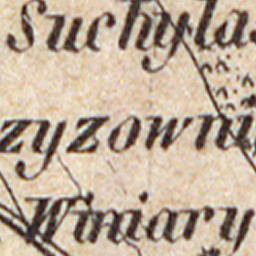 Suchylas
zyzowni
Winiary